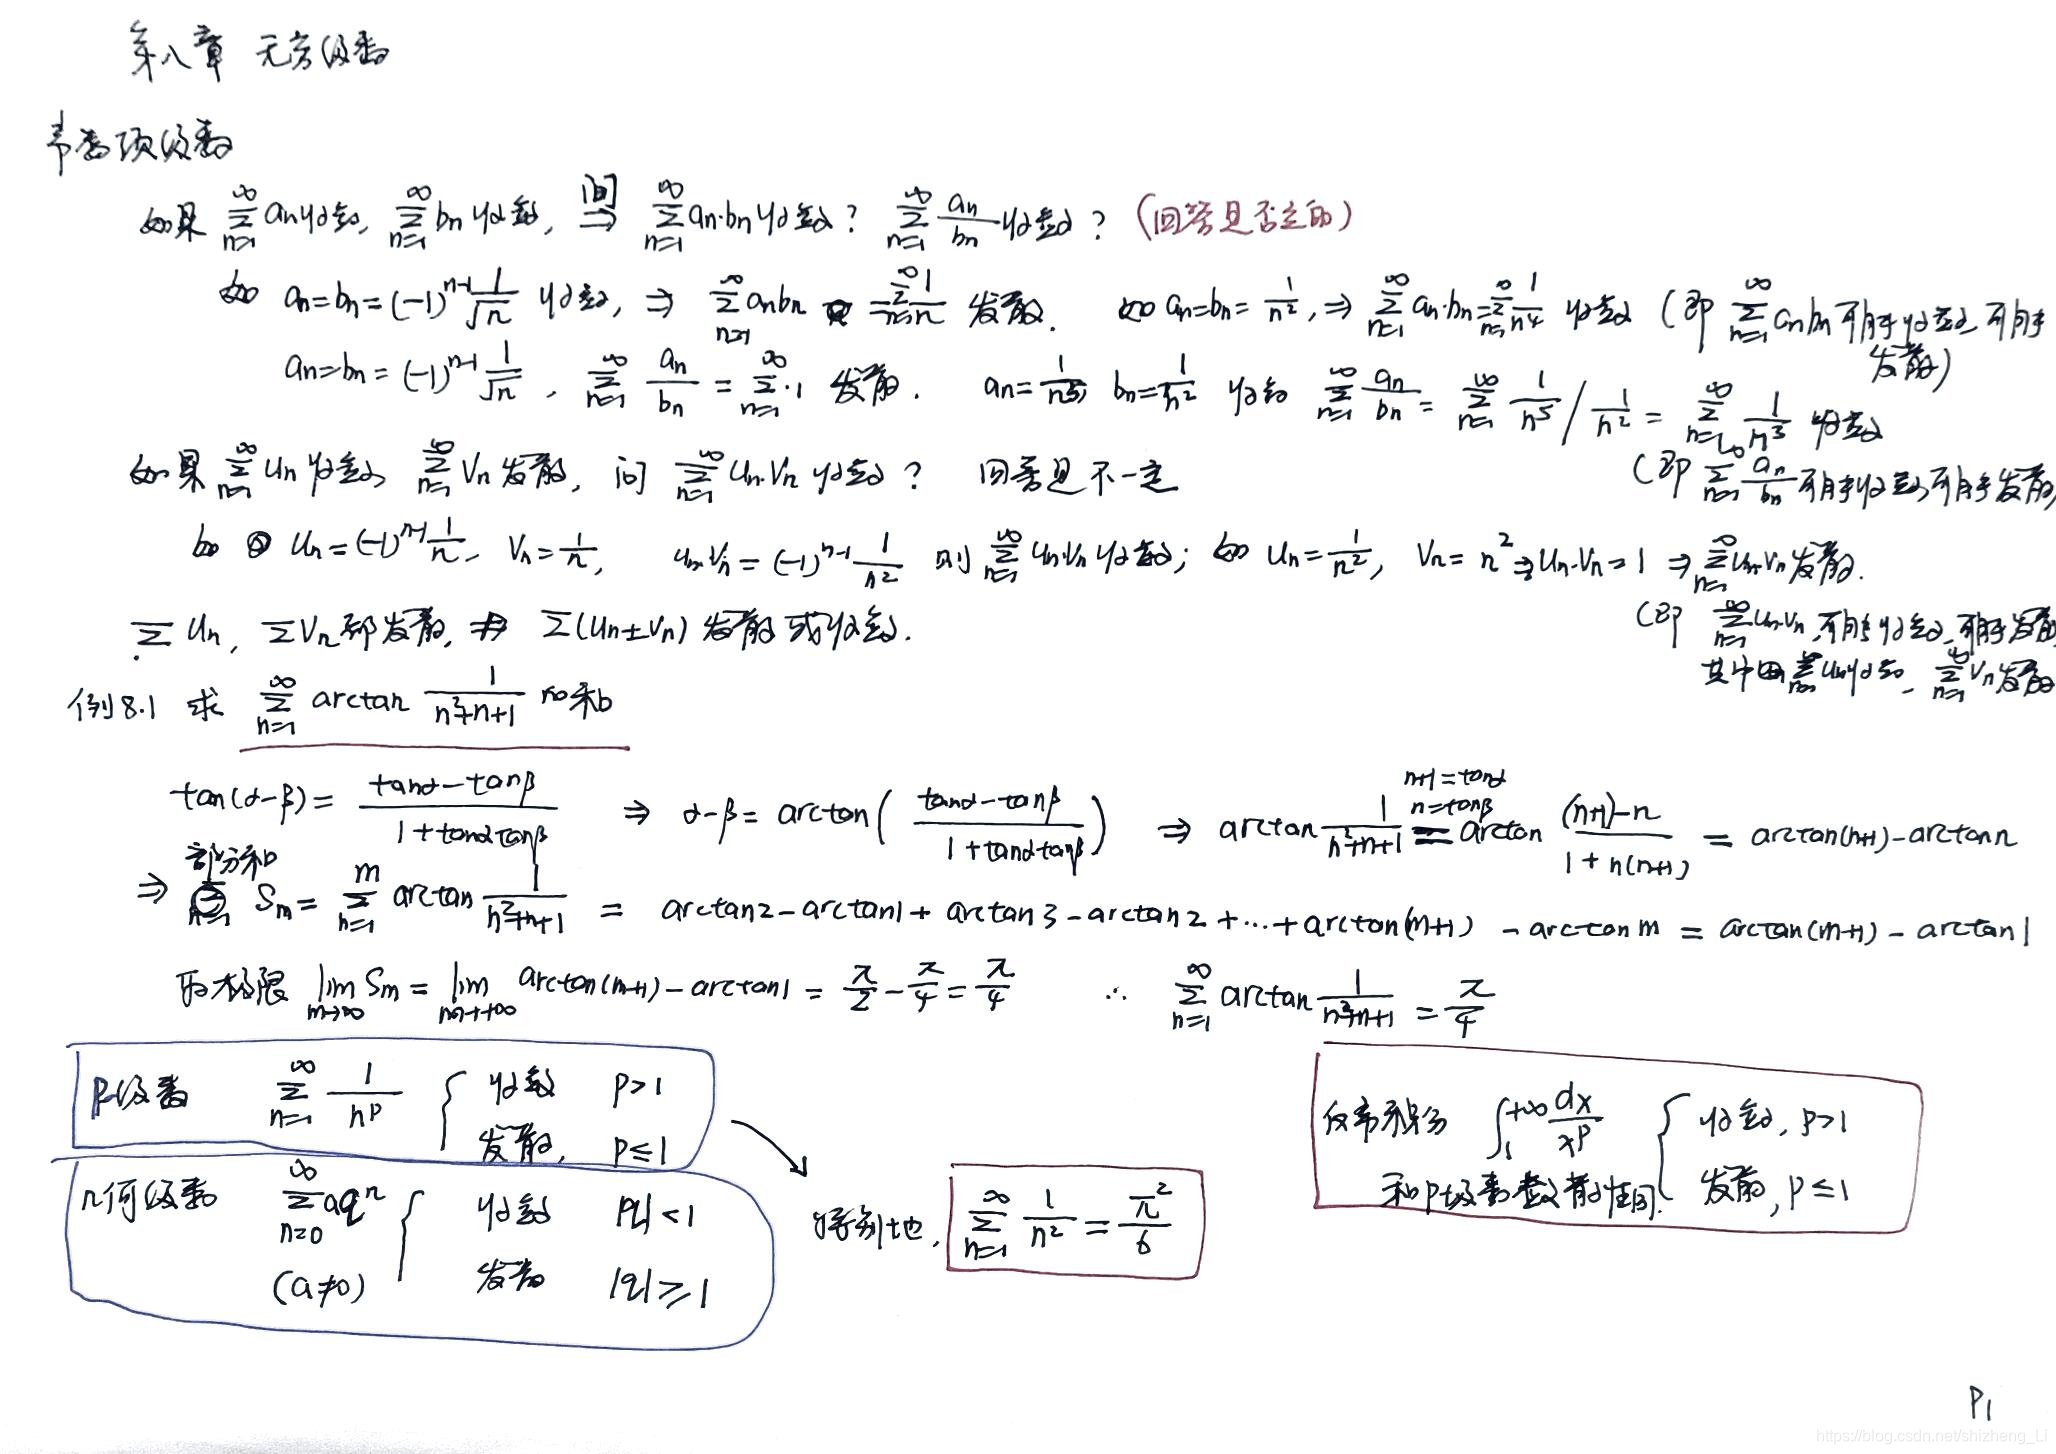 第八章 无穷级数
常数项级数
如果 $\sum_{n=1}^{\infty} a_n$ 收敛, $\sum_{n=1}^{\infty} b_n$ 收敛, 问 ⇒ $\sum_{n=1}^{\infty} a_n \cdot b_n$ 收敛? $\sum_{n=1}^{\infty} \frac{a_n}{b_n}$ 收敛? (回答是否定的)
如 $a_n=b_n=(-1)^{n-1}\frac{1}{\sqrt{n}}$ 收敛, ⇒ $\sum_{n=1}^{\infty} a_n b_n = \sum_{n=1}^{\infty}\frac{1}{n}$ 发散. 如 $a_n=b_n=\frac{1}{n^2}$, ⇒ $\sum_{n=1}^{\infty} a_n \cdot b_n = \sum_{n=1}^{\infty}\frac{1}{n^4}$ 收敛 (即 $\sum_{n=1}^{\infty} a_n b_n$ 可能收敛, 可能
发散)
$a_n=b_n=(-1)^{n-1}\frac{1}{\sqrt{n}}$, $\sum_{n=1}^{\infty}\frac{a_n}{b_n}=\sum_{n=1}^{\infty}\cdot 1$ 发散. $a_n=\frac{1}{n^5}$, $b_n=\frac{1}{n^2}$ 收敛 $\sum_{n=1}^{\infty}\frac{a_n}{b_n}=\sum_{n=1}^{\infty}\frac{1}{n^5}/\frac{1}{n^2}=\sum_{n=1}^{\infty}\frac{1}{n^3}$ 收敛
(即 $\sum_{n=1}^{\infty}\frac{a_n}{b_n}$ 可能收敛, 可能发散)
如果 $\sum_{n=1}^{\infty} u_n$ 收敛, $\sum_{n=1}^{\infty} v_n$ 发散, 问 $\sum_{n=1}^{\infty} u_n \cdot v_n$ 收敛? 回答是不一定
如 $u_n=(-1)^{n-1}\frac{1}{n}$, $v_n=\frac{1}{n}$, $u_n \cdot v_n=(-1)^{n-1}\frac{1}{n^2}$ 则 $\sum_{n=1}^{\infty} u_n \cdot v_n$ 收敛; 如 $u_n=\frac{1}{n^2}$, $v_n=n^2$ ⇒ $u_n \cdot v_n=1$ ⇒ $\sum_{n=1}^{\infty} u_n \cdot v_n$ 发散.
(即 $\sum_{n=1}^{\infty} u_n \cdot v_n$, 可能收敛, 可能发散
其中 $\sum_{n=1}^{\infty} u_n$ 收敛, $\sum_{n=1}^{\infty} v_n$ 发散
$\sum u_n$, $\sum v_n$ 都发散, ⇏ $\sum(u_n \pm v_n)$ 发散或收敛.
例8.1 求 $\sum_{n=1}^{\infty} \arctan\frac{1}{n^2+n+1}$ 的和
$\tan(\alpha-\beta)=\frac{\tan\alpha-\tan\beta}{1+\tan\alpha\tan\beta}$ ⇒ $\alpha-\beta=\arctan\left(\frac{\tan\alpha-\tan\beta}{1+\tan\alpha\tan\beta}\right)$ ⇒ $\arctan\frac{1}{n^2+n+1}\overset{n+1=\tan\alpha}{\underset{n=\tan\beta}{=}}\arctan\frac{(n+1)-n}{1+n(n+1)}=\arctan(n+1)-\arctan n$
⇒ 部分和 $S_m=\sum_{n=1}^{m}\arctan\frac{1}{n^2+n+1}=\arctan 2-\arctan 1+\arctan 3-\arctan 2+\cdots+\arctan(m+1)-\arctan m=\arctan(m+1)-\arctan 1$
取极限 $\lim_{m\to\infty} S_m=\lim_{m\to+\infty}\arctan(m+1)-\arctan 1=\frac{\pi}{2}-\frac{\pi}{4}=\frac{\pi}{4}$ ∴ $\sum_{n=1}^{\infty}\arctan\frac{1}{n^2+n+1}=\frac{\pi}{4}$
p-级数 $\sum_{n=1}^{\infty}\frac{1}{n^p}$ { 收敛 p>1
发散, p≤1
几何级数 $\sum_{n=0}^{\infty} aq^n$ { 收敛 |q|<1
(a≠0) 发散 |q|≥1
特别地, $\sum_{n=1}^{\infty}\frac{1}{n^2}=\frac{\pi^2}{6}$
反常积分 $\int_1^{+\infty}\frac{dx}{x^p}$ { 收敛, p>1
发散, p≤1
和p-级数敛散性同.
P1
https://blog.csdn.net/shizheng_Li